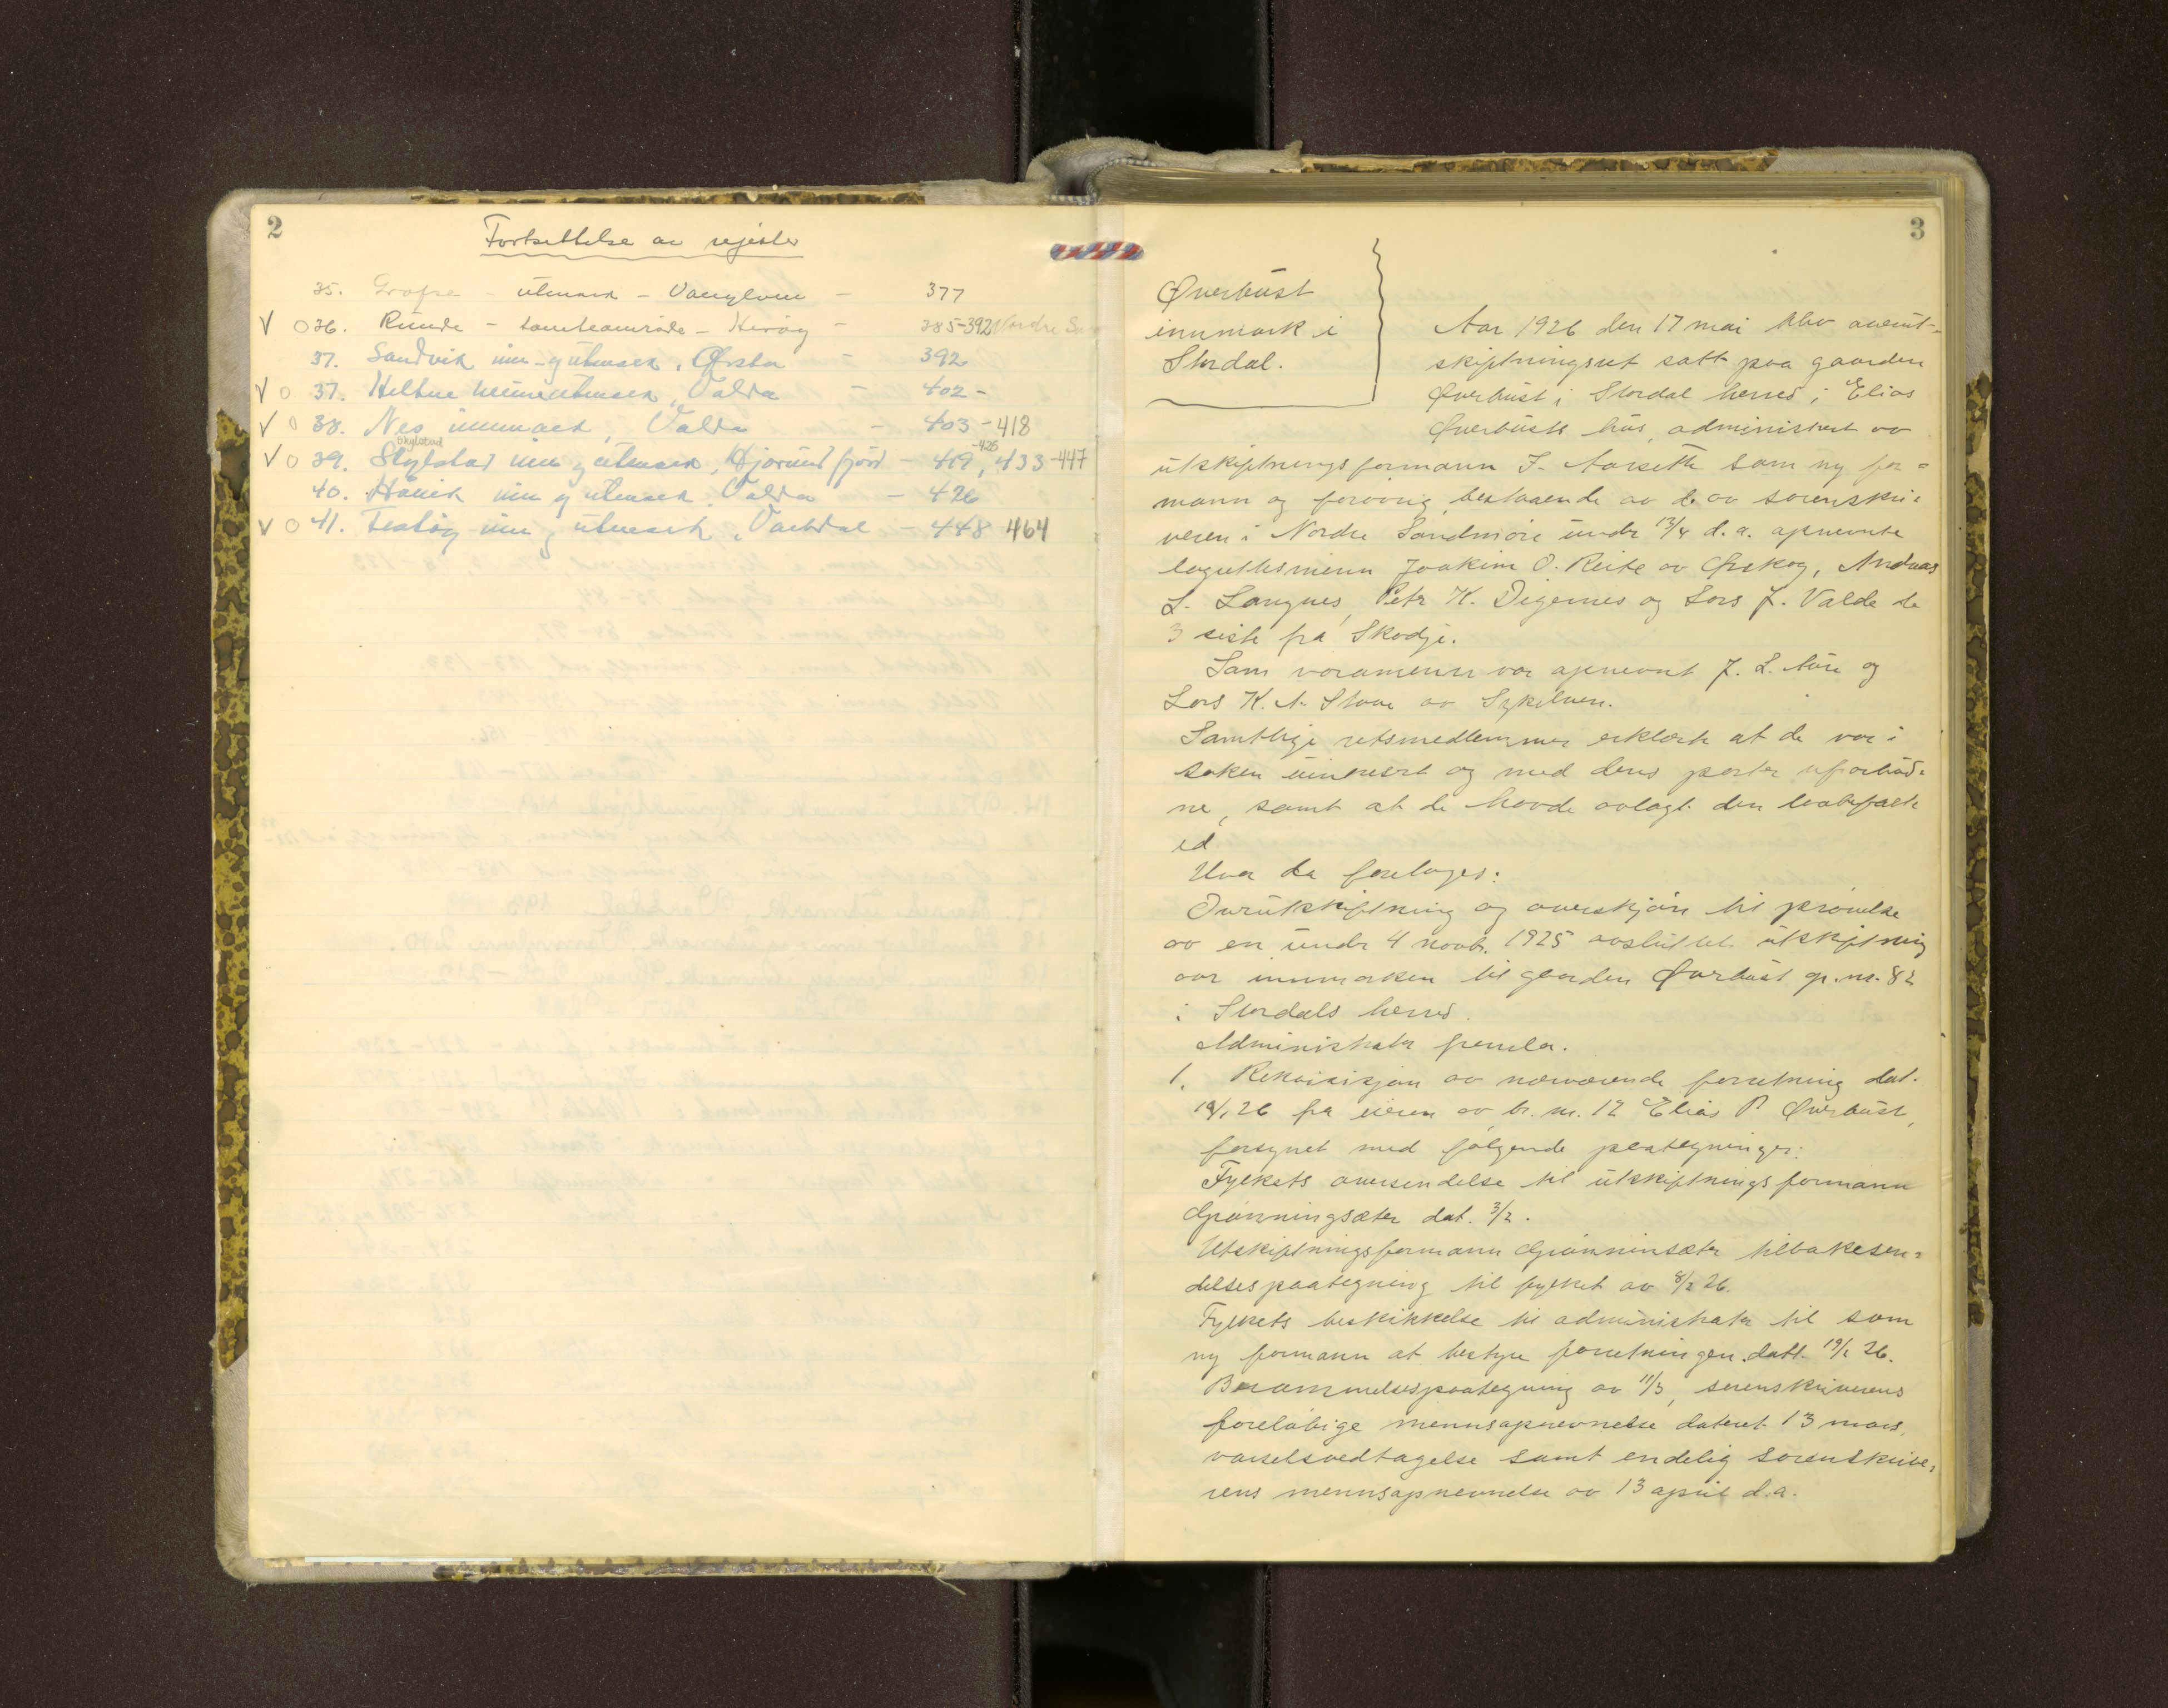 2
Fortsettelse av register
35. - utmark - Vanylven - 377
V O 36. Runde - - Herøy - 385-392 Nordre
37. Sandvik inn- og utmark, Ørsta - 392
V O 37. utmark, Volda - 402 -
V O 38. Nes innmark, Volda - 403 - 418
Skylstad
V O 39. Skylstad inn og utmark, Hjørundfjord - 419 -428, 433-447
40. Håvik inn og utmark. Volda - 426
V O 41. inn og utmark, Vartdal - 448 464
3
Øverbust
innmark i
Stordal.
Aar 1926 den 17 mai blev overut-
skiftningsret satt paa gaarden
Øverbust i Stordal herred i Elias
Øverbusts hus, administrert av
utskiftningsformann J. Aarseth som ny for=
mann og forøvrig bestaaende av de av sorenskri=
veren i Nordre Søndmøre under 13/4 d.a. opnevnte
lagrettesmenn Joakim O. Reite av Ørskog, Andreas
L. Langnes, Petr K. Digernes og Lars J. Valde de
3 siste fra Skodje.
Som varamenn var opnevnt J. L. Aure og
Lars K. N. Stave av Sykelven.
Samtlige retsmedlemmer erklærte at de var i
saken uinteresert og med dens parter uforbud=
ne, samt at de havde avlagt den lovbefalte
ed
Hvor da foretoges:
Overutskiftning og overskjøn til prøvelse
av en under 4 novbr. 1925 avsluttet utskiftning
over innmarken til gaarden Øverbust gr. nr. 82
i Stordals herred.
Administrator fremla.
1. Rekvisisjon av nærværende forretning dat.
26 fra eieren av br. nr. 12 Elias P Øverbust,
forsynet med følgende paategninger:
Fylkets oversendelse til utskiftningsformann
Grønningsæter dat. 3/2.
Utskiftningsformann Grønninsæter tilbakesen=
delsespaategning til fylket av 8/2 26.
Fylkets beskikkelse til administrator til som
ny formann at bestyre forretningen datt. 19/2 26.
Berammelsespaategning av 11/3, sorenskriverens
foreløbige mennsopnevnelse dateret 13 mars,
varselsvedtagelse samt endelig sorenskrive=
rens mennsopnevnelse av 13 april d.a.